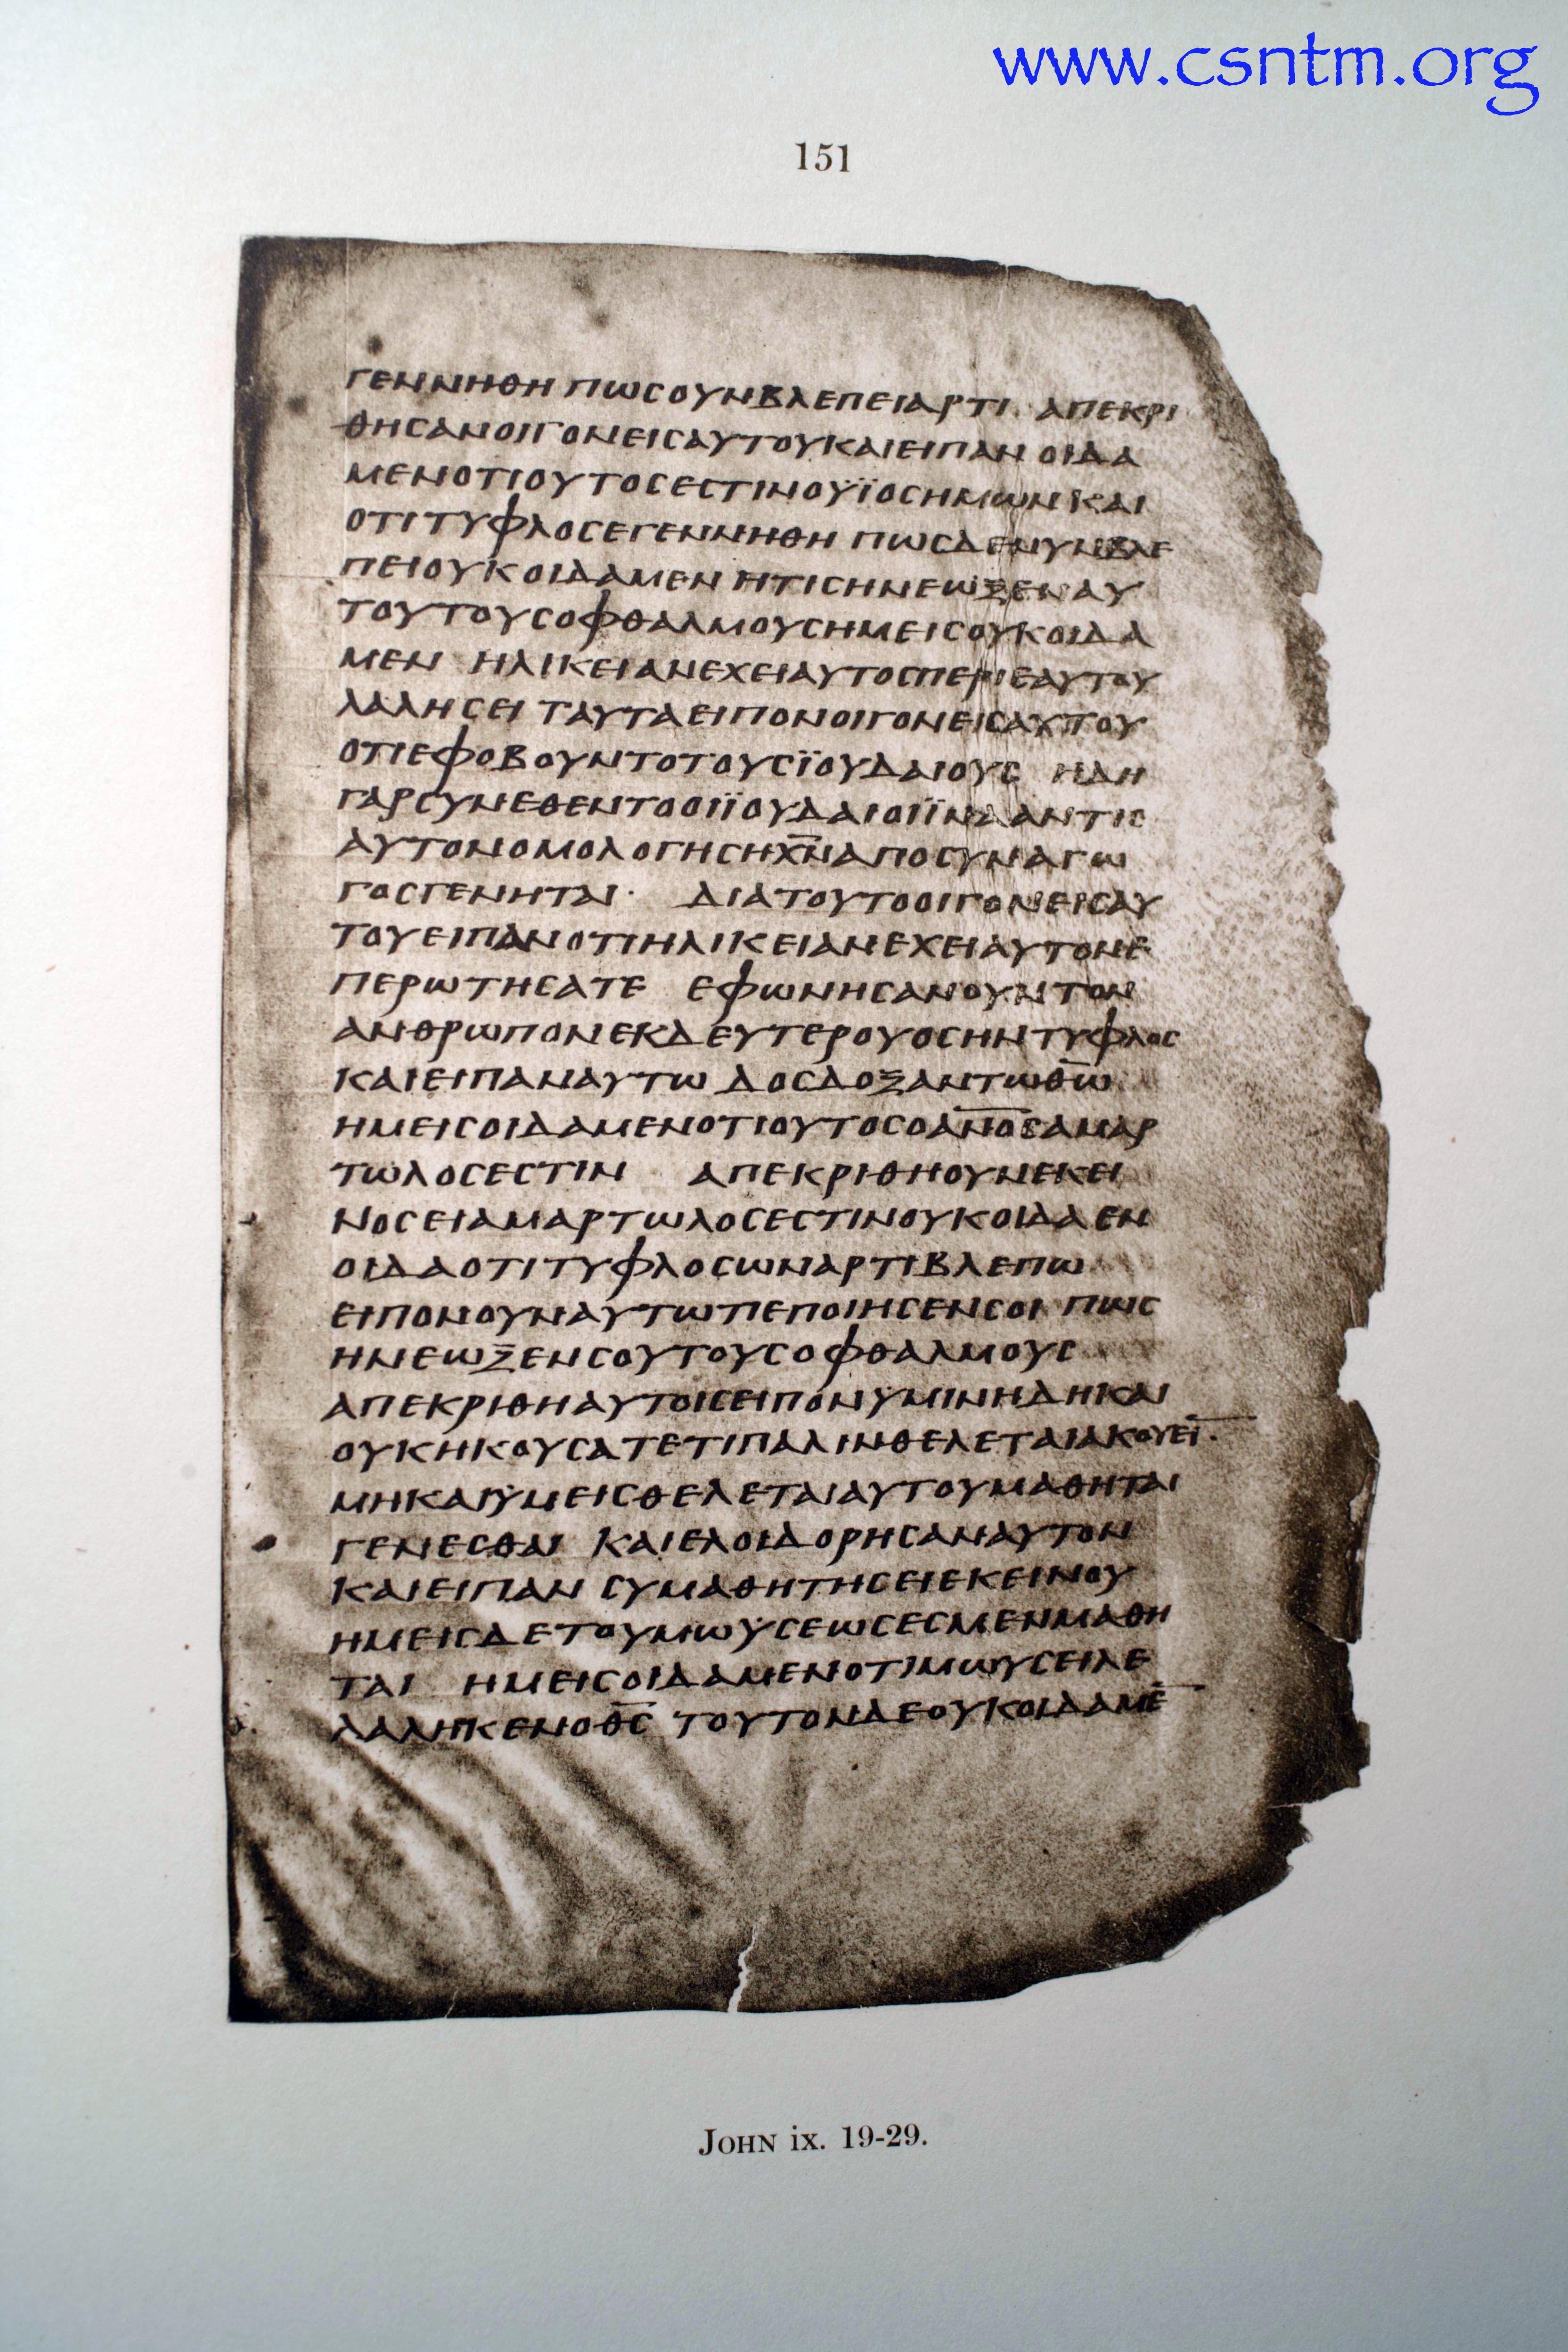 www.csntm.org
151
ΓΕΝΝΗΘΗ ΠΩCΟΥΝΒΛΕΠΕΙΑΡΤΙ ΑΠΕΚΡΙ
ΘΗCΑΝΟΙΓΟΝΕΙCΑΥΤΟΥΚΑΙΕΙΠΑΝ ΟΙΔΑ
ΜΕΝΟΤΙΟΥΤΟCΕCΤΙΝΟΥΪΟCΗΜΩΝΚΑΙ
ΟΤΙΤΥΦΛΟCΕΓΕΝΝΗΘΗ ΠΩCΔΕΝΥΝΒΛΕ
ΠΕΙΟΥΚΟΙΔΑΜΕΝ ΗΤΙCΗΝΕΩΞΕΝΑΥ
ΤΟΥΤΟΥCΟΦΘΑΛΜΟΥCΗΜΕΙCΟΥΚΟΙΔΑ
ΜΕΝ ΗΛΙΚΕΙΑΝΕΧΕΙΑΥΤΟCΠΕΡΙΕΑΥΤΟΥ
ΛΑΛΗCΕΙ ΤΑΥΤΑΕΙΠΟΝΟΙΓΟΝΕΙCΑΥΤΟΥ
ΟΤΙΕΦΟΒΟΥΝΤΟΤΟΥCΪΟΥΔΑΙΟΥC ΗΔΗ
ΓΑΡCΥΝΕΘΕΝΤΟΟΙΪΟΥΔΑΙΟΙΪΝΑΑΝΤΙC
ΑΥΤΟΝΟΜΟΛΟΓΗCΗΧ̅Ν̅ΑΠΟCΥΝΑΓΩ
ΓΟCΓΕΝΗΤΑΙ· ΔΙΑΤΟΥΤΟΟΙΓΟΝΕΙCΑΥ
ΤΟΥΕΙΠΑΝΟΤΙΗΛΙΚΕΙΑΝΕΧΕΙΑΥΤΟΝΕ
ΠΕΡΩΤΗCΑΤΕ ΕΦΩΝΗCΑΝΟΥΝΤΟΝ
ΑΝΘΡΩΠΟΝΕΚΔΕΥΤΕΡΟΥΟCΗΝΤΥΦΛΟC
ΚΑΙΕΙΠΑΝΑΥΤΩ ΔΟCΔΟΞΑΝΤΩΘ̅Ω̅
ΗΜΕΙCΟΙΔΑΜΕΝΟΤΙΟΥΤΟCΟΑ̅Ν̅Ο̅C̅ΑΜΑΡ
ΤΩΛΟCΕCΤΙΝ ΑΠΕΚΡΙΘΗΟΥΝΕΚΕΙ
ΝΟCΕΙΑΜΑΡΤΩΛΟCΕCΤΙΝΟΥΚΟΙΔΑΕΝ
ΟΙΔΑΟΤΙΤΥΦΛΟCΩΝΑΡΤΙΒΛΕΠΩ
ΕΙΠΟΝΟΥΝΑΥΤΩΤΙΕΠΟΙΗCΕΝCΟΙ ΠΩC
ΗΝΕΩΞΕΝCΟΥΤΟΥCΟΦΘΑΛΜΟΥC
ΑΠΕΚΡΙΘΗΑΥΤΟΙCΕΙΠΟΝΥΜΙΝΗΔΗΚΑΙ
ΟΥΚΗΚΟΥCΑΤΕΤΙΠΑΛΙΝΘΕΛΕΤΑΙΑΚΟΥΕΙ̅
ΜΗΚΑΙΫΜΕΙCΘΕΛΕΤΑΙΑΥΤΟΥΜΑΘΗΤΑΙ
ΓΕΝΕCΘΑΙ ΚΑΙΕΛΟΙΔΟΡΗCΑΝΑΥΤΟΝ
ΚΑΙΕΙΠΑΝ CΥΜΑΘΗΤΗCΕΙΕΚΕΙΝΟΥ
ΗΜΕΙCΔΕΤΟΥΜΩΫCΕΩCΕCΜΕΝΜΑΘΗ
ΤΑΙ ΗΜΕΙCΟΙΔΑΜΕΝΟΤΙΜΩΥCΕΙΛΕ
ΛΑΛΗΚΕΝΟΘ̅C̅ ΤΟΥΤΟΝΔΕΟΥΚΟΙΔΑΜΕ̅
JOHN ix. 19-29.